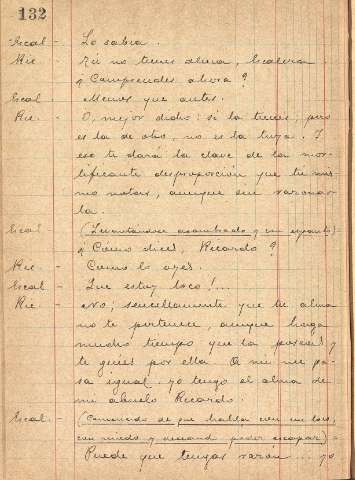 132
Escal - Lo sabia.
Ric - Tú no tienes alma, Escalera
¿ Comprendes ahora ?
Escal - Menos que antes.
Ric. - O, mejor dicho: si la tienes, pero
es la de otro, no es la tuya. Y
eso te dará la clave de la mor-
tificante desproporcion que tú mis-
mo notas, aunque sin razonar-
la.
Escal - (Levantandose asombrado y con espanto)
¿ Cómo dices, Ricardo ?
Ric. - Como lo oyes.
Escal - Que estoy loco !...
Ric - No; sencillamente que tu alma
no te pertenece, aunque haga
mucho tiempo que la posees y
te guies por ella. A mi me pa-
sa igual. yo tengo el alma de
mi abuelo Ricardo.
Escal - (Convencido de que habla con un loco,
con miedo y deseando poder escapar)
Puede que tengas razón... yo